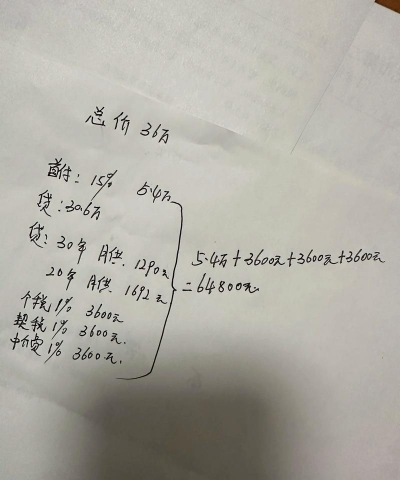 总价 36万
首付: 15% 5.4万
贷: 30.6万
贷: 30年 月供. 1290元
20年 月供. 1692元
个税 1% 3600元
契税 1% 3600元.
中介费 1% 3600元.
5.4万+3600元+3600元+3600元
=64800元.